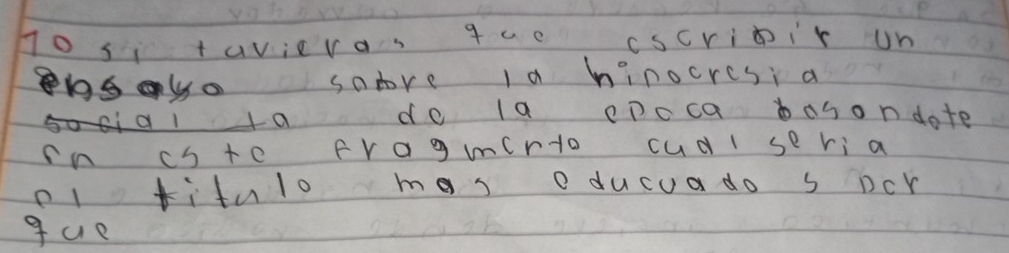 10 si tuvieras que escribir un
ensayo sobre la hipocresia
social la de la epoca basandote
en este fragmento cual seria
el titulo mas educuado s por
que